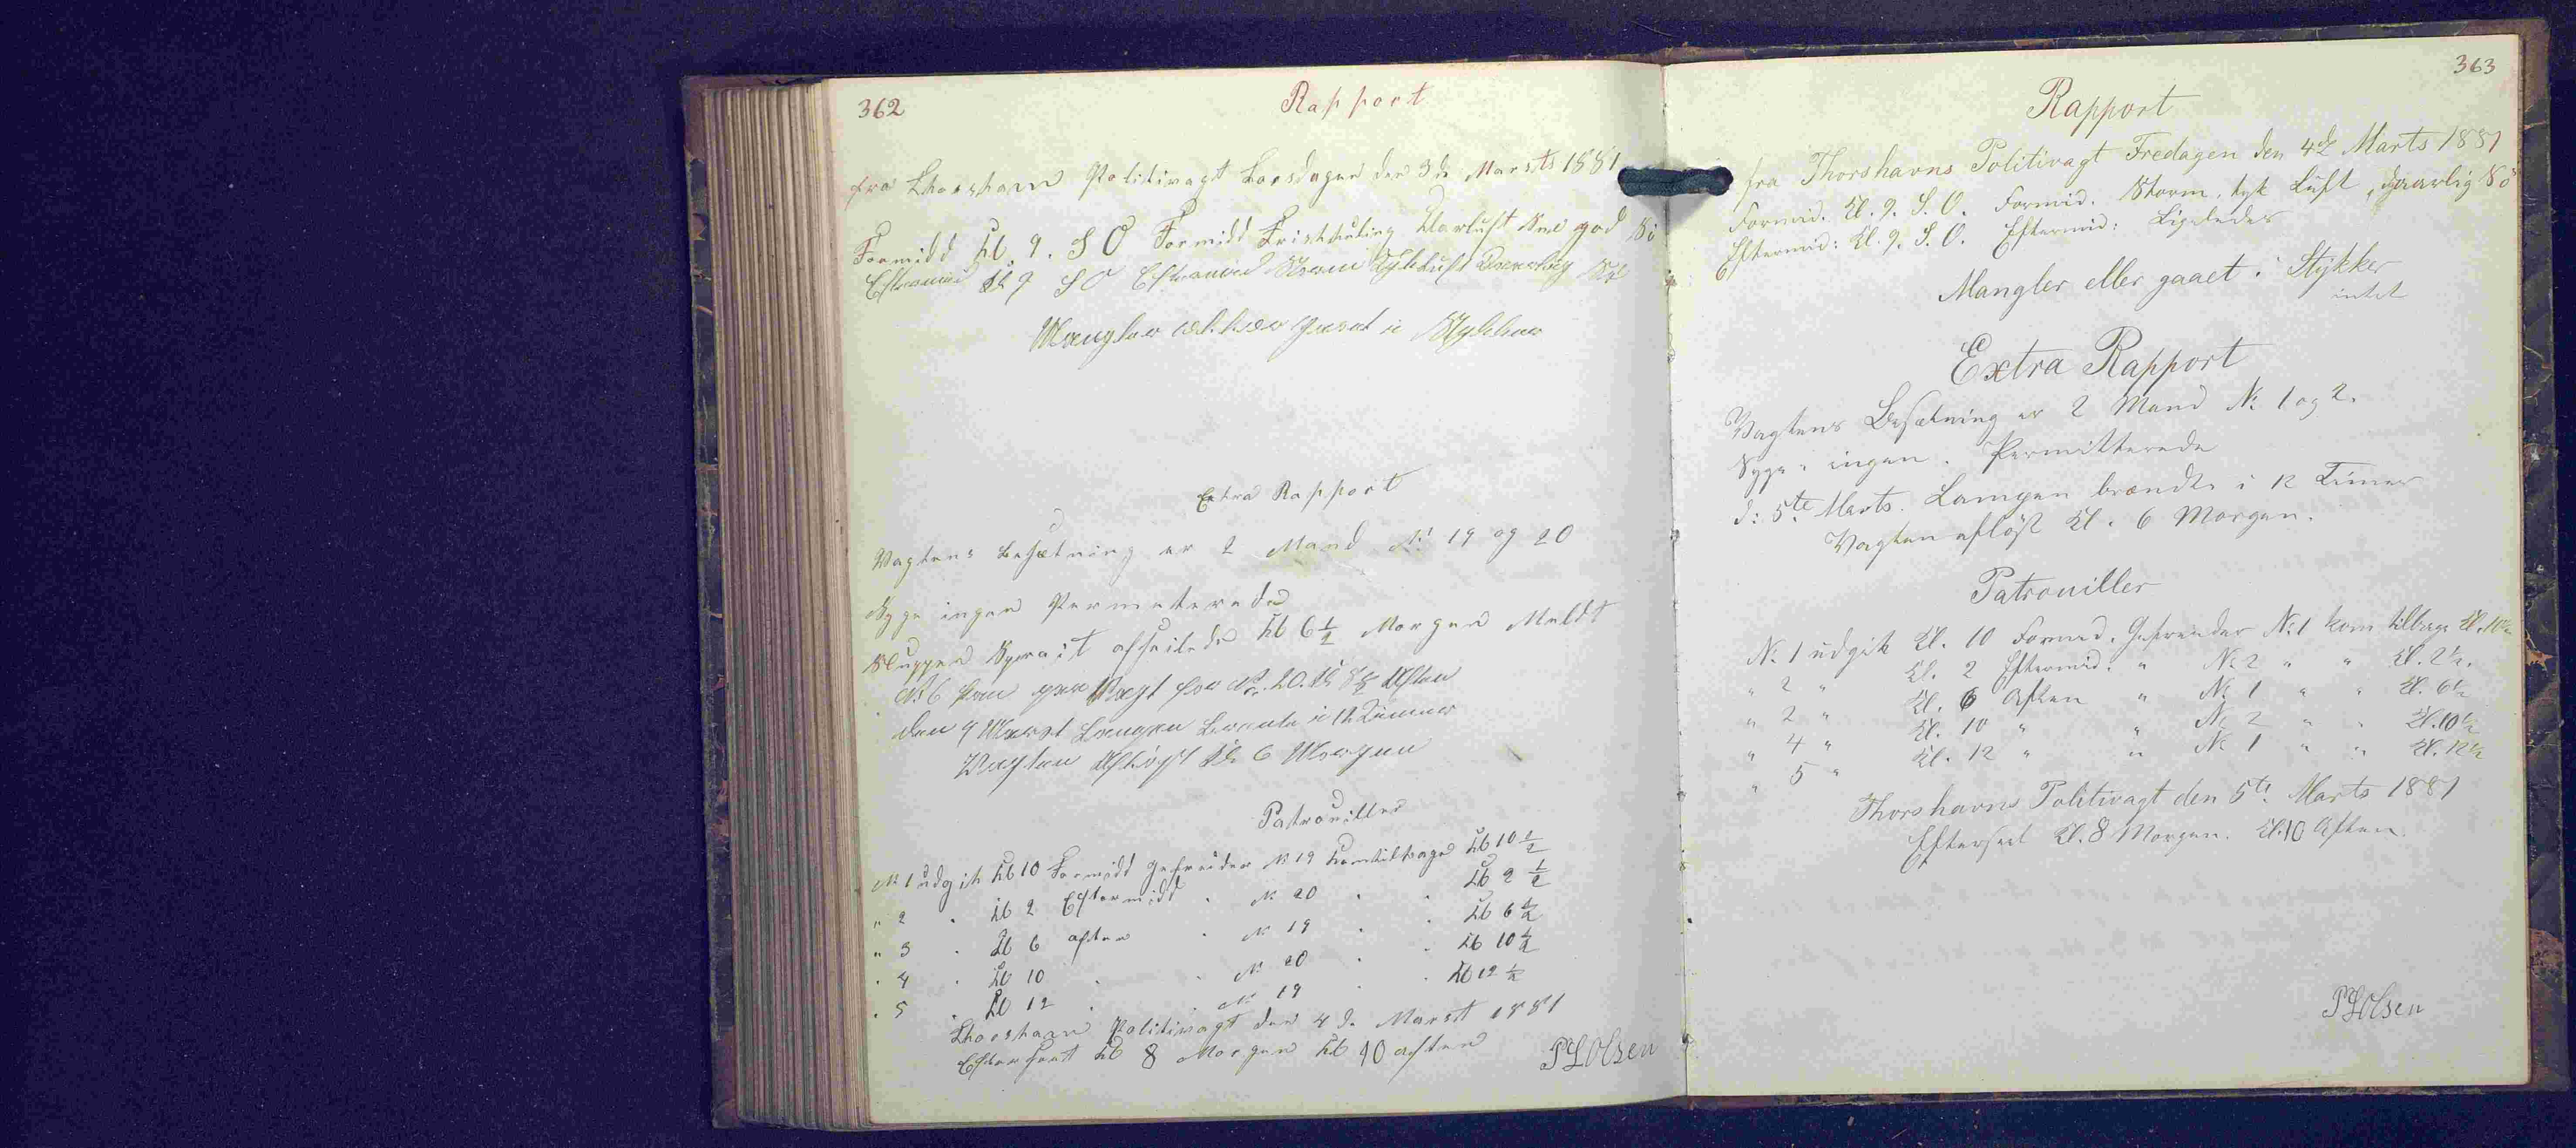 362
Rapport
fra Thorshavn Politivagt Torsdagen den 3de Marsts 1881
Formidd Kl. 9. S O Formidd Frisk Kuling Klarluft Sne god Sö
Eftermid Kl 9 S O Eftermid Storm Tykluft Daarlig Sö
Mangler eller gaaet i Stykker
Extra Rapport
Vagtens besætning er 2 Mand No 19 og 20
Syge ingen Permiterede
Sluppen afseilede Kl 6½ Morgen Meldt
No 6 Vagt for No. 20. Kl Aften
den 4 Marst Lampen brente i 12 Timmer
Vagten Aflöst Kl 6 Morgen
Patrouiller
No 1 udgik Kl 10 Formidd Gefreider No 19 komtilbage Kl 10 ½
" 2 " Kl 2 Eftermidd " No 20 " " Kl 2 ½
" 3 " Kl 6 aften " No 19 " " Kl 6 ½
" 4 " Kl 10 " " No 20 " " Kl 10 ½
" 5 " Kl 12 " " No 19 " " Kl 12 ½
Thorshavn Politivagt den 4 de Marst 1881
Efterseet Kl 8 Morgen Kl 10 aften
PLOlsen
363
Rapport
fra Thorshavns Politivagt Fredagen den 4de Marts 1881
Formid. Kl. 9. S. O. Formid. Storm, tyk Luft, daarlig Sö
Eftermid: Kl. 9. S. O. Eftermid: Ligeledes
Mangler eller gaaet i Stykker
intet
Extra Rapport
Vagtens Besætning er 2 Mand No 1 og 2.
Syge: ingen. Permitterede
d: 5te Marts. Lampen brændte i 12 Timer
Vagten aflöst Kl. 6 Morgen.
Patrouiller
No. 1 udgik Kl. 10 Formid. Gefreider No 1 kom tilbage Kl. 10½
" 2 " Kl. 2 Eftermid. " No 2 " " Kl. 2½.
" 2 " Kl. 6 Aften " No 1 " " Kl. 6½
" 4 " Kl. 10 " " No 2 " " Kl. 10½
" 5 " Kl. 12 " " No 1 " " Kl. 12½
Thorshavns Politivagt den 5te Marts 1881
Efterseet Kl. 8 Morgen. Kl. 10 Aften.
PLOlsen